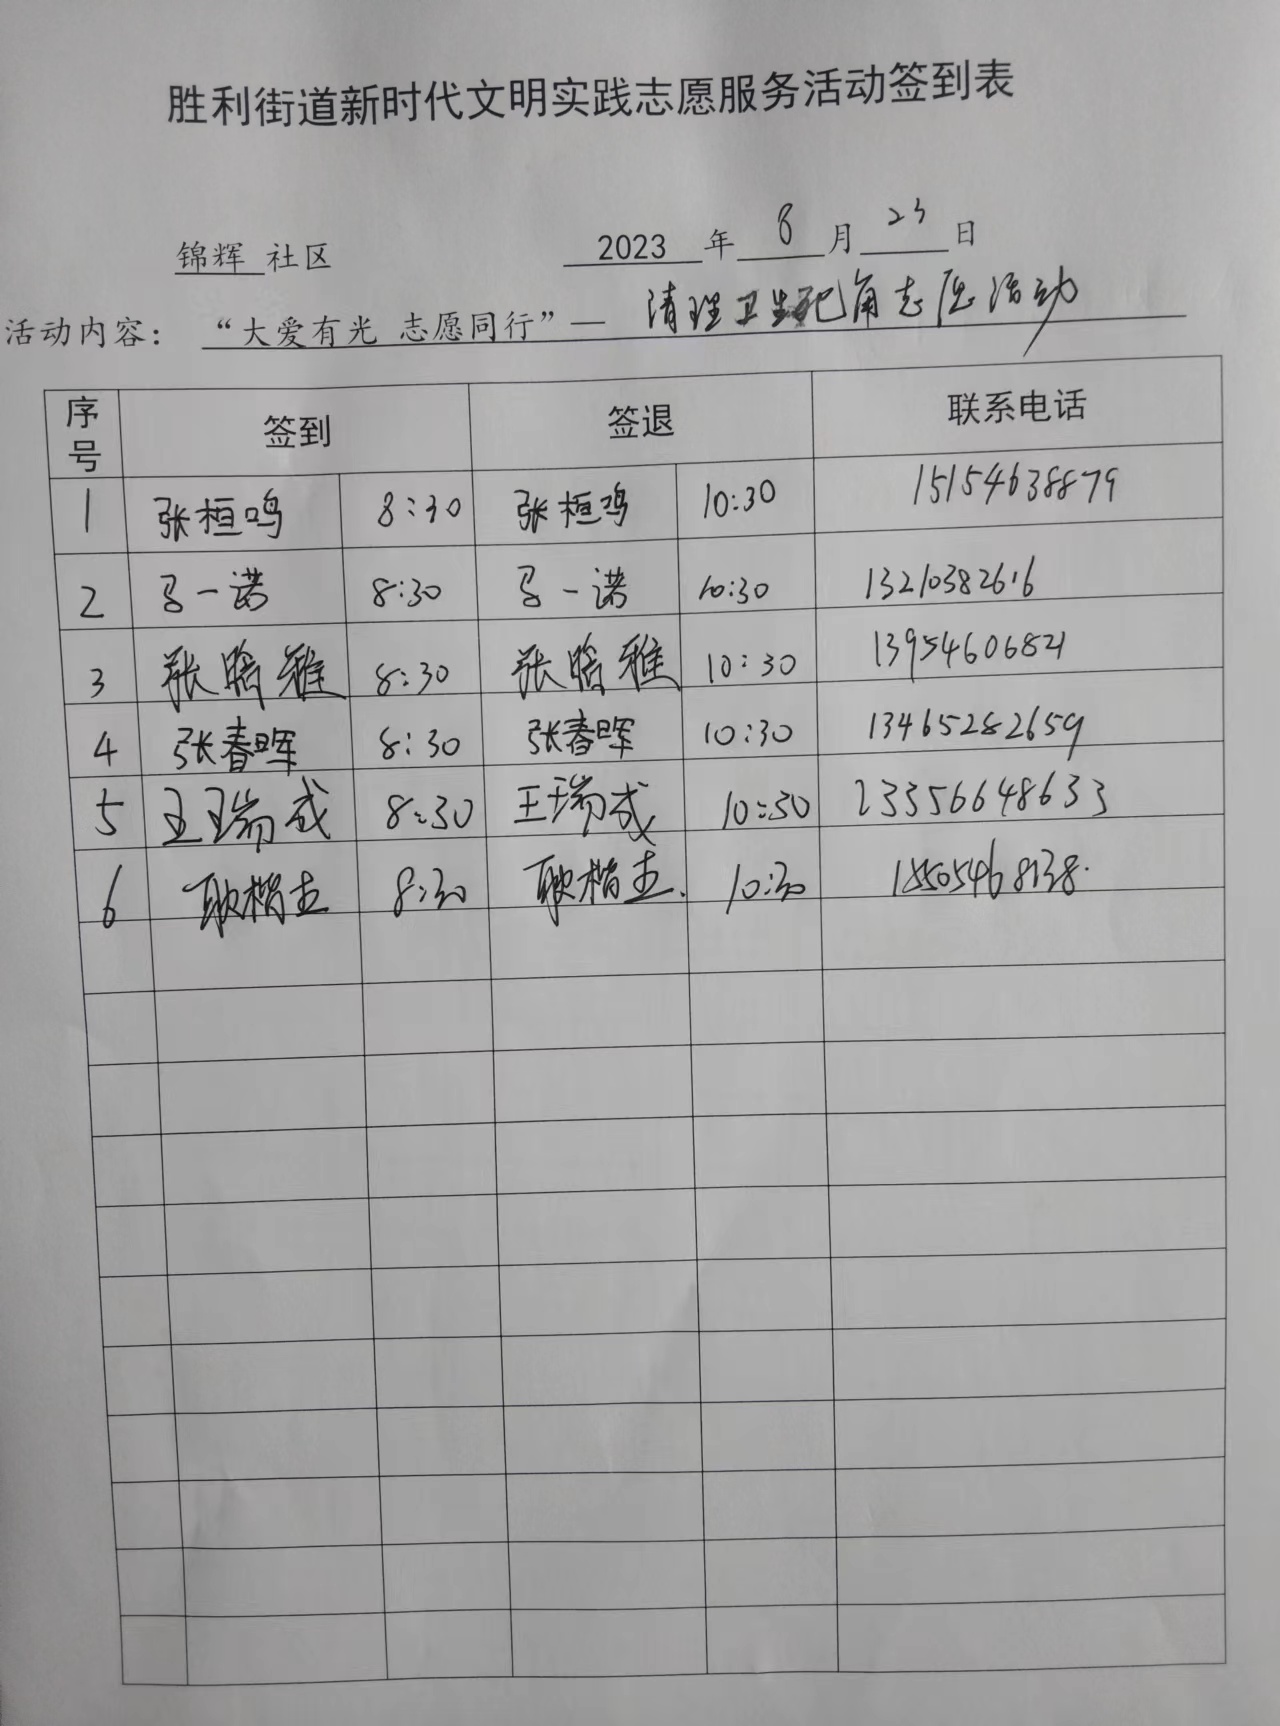 胜利街道新时代文明实践志愿服务活动签到表
锦辉 社区 2023 年 8 月 23 日
活动内容： “大爱有光 志愿同行”— 清理卫生死角志愿活动
序号 签到 签退 联系电话
1 张桓鸣 8:30 张桓鸣 10:30 15154638879
2 马一诺 8:30 马一诺 10:30 13210382616
3 张皓雅 8:30 张皓雅 10:30 13954606821
4 张春晖 8:30 张春晖 10:30 13465282659
5 王瑞成 8:30 王瑞成 10:30 23356648633
6 耿楷 8:30 耿楷 10:30